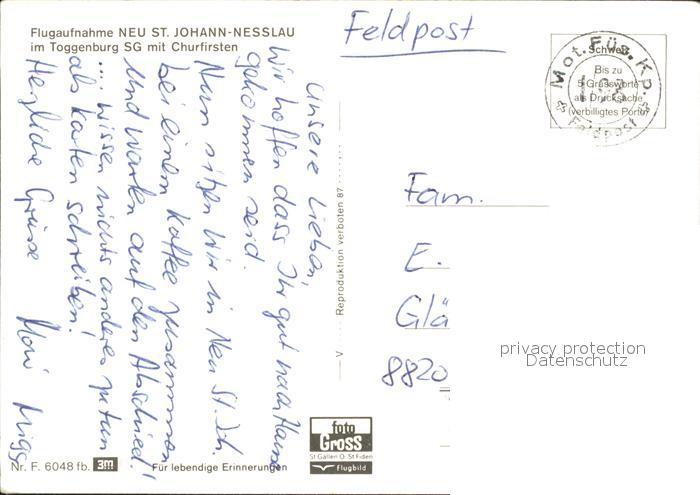 Flugaufnahme NEU ST. JOHANN-NESSLAU
im Toggenburg SG mit Churfirsten
Unsere Lieben,
Wir hoffen dass Ihr gut nach Hause
gekommen seid.
Nun sitzen wir in Neu St. Joh.
bei einem Kaffee zusammen
und warten auf den Abschied!
... wissen nichts anderes zu tun
als Karten schreiben!
Herzliche Grüsse
Nr. F. 6048 fb. 3m
Für lebendige Erinnerungen
V
Reproduktion verboten 87
foto
GROSS
St Gallen O. St Fiden
flugbild
Feldpost
Schweiz
Bis zu
5 Grussworte
als Drucksache
(verbilligtes Porto)
Mot. Füs. Kp.
Feldpost
Fam.
E.
Glä
8820
privacy protection
Datenschutz